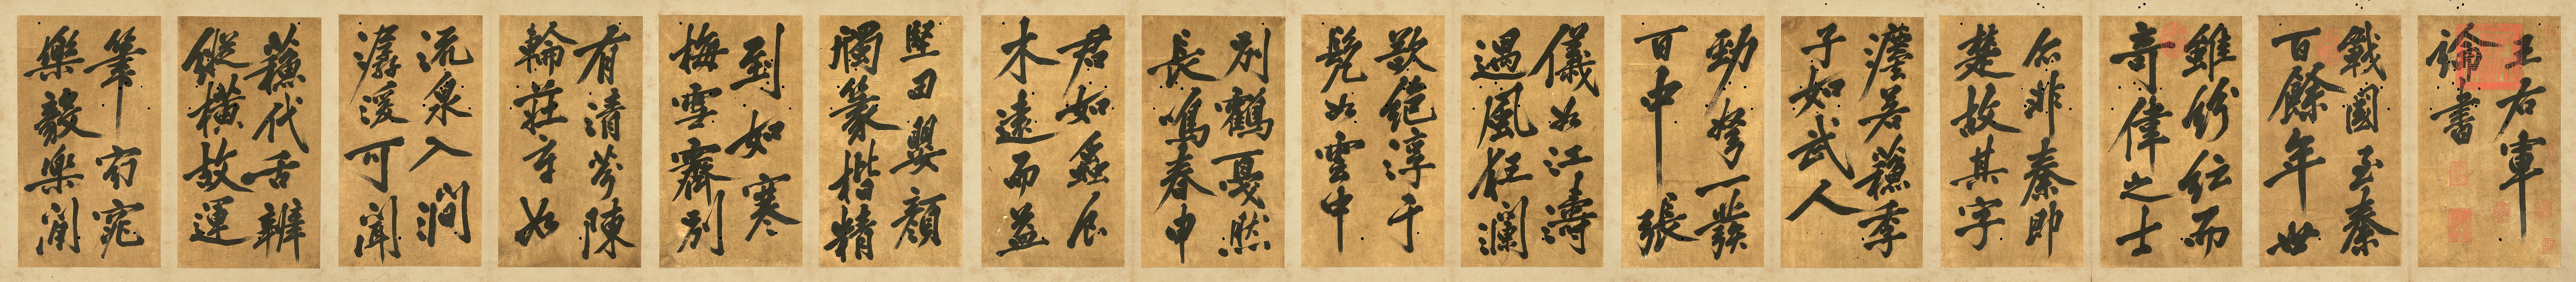 王右軍
論書
戰國至秦
百餘年世
雖紛紜而
奇偉之士
非秦即
楚故其字
若蘓季
子如武人
勁弩一發
百中張
儀如江濤
遇風狂瀾
欻絕淳于
髡如雲中
別鶴戛然
長鳴春申
君如蠡食
木遠而益
堅田嬰顏
斶篆楷精
到如寒
梅雪霽別
有清芬陳
軫莊辛如
流泉入澗
潺湲可聞
蘓代舌辨
縱橫故運
筆窈窕
樂毅樂閒